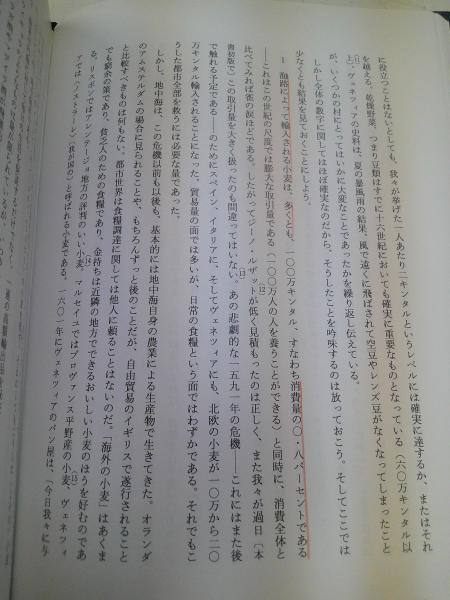 に役立つことはないとしても、我々が挙げた一人あたり二キンタルというレベルには確実に達するか、またはそれ
を越える。乾燥野菜、つまり豆類はすでに十六世紀においても確実に重要なものとなっている（六〇万キンタル以
上）。ヴェネツィアの史料は、夏の暴風雨の結果、風で遠くに飛ばされて空豆やレンズ豆がなくなってしまったこと
が、いくつかの村にとってはいかに大変なことであったかを繰り返し伝えている。
しかし全体の数字に関してはほぼ確実なのだから、そうしたことを吟味するのは放っておこう。そしてここでは
少なくとも結果を見ておくことにしよう。
1 海路によって輸入される小麦は、多くとも、一〇〇万キンタル、すなわち消費量の〇・八パーセントである
――これはこの世紀の尺度では膨大な取引量である（一〇〇万人の人を養うことができる）と同時に、消費全体と
比べてみれば雀の涙ほどである。したがってジーノ・ルザットが低く見積もったのは正しく、また我々が過日〔本
書初版で〕この取引量を大きく扱ったのも間違ってはいない。あの悲劇的な一五九一年の危機――これにはまた後
で触れる予定である――のためにスペイン、イタリアに、そしてヴェネツィアにも、北欧の小麦が一〇万から二〇
万キンタル輸入されることになった。貿易量の面では多いが、日常の食糧という面ではわずかである。それでもこ
うした都市全部を救うには必要な量であった。
しかし、地中海は、この危機以前も以後も、基本的には地中海自身の農業による生産物で生きてきた。オランダ
のアムステルダムの場合に見られることや、もちろんずっと後のことだが、自由貿易のイギリスで遂行されること
と比較すべきものは何もない。都市世界は食糧調達に関しては他人に頼ることはないのだ。「海外の小麦」はあくま
でも窮余の策であり、貧乏人のための食糧であり、金持ちは近隣の地方でできるおいしい小麦のほうを好むのであ
る。リスボンではアレンテージョ地方の評判のいい小麦、マルセイユではプロヴァンス平野産の小麦、ヴェネツィ
アでは〈ノストラーレ〉〔我が国の〕と呼ばれる小麦である。一六〇一年にヴェネツィアのパン屋は、「今日我々に与